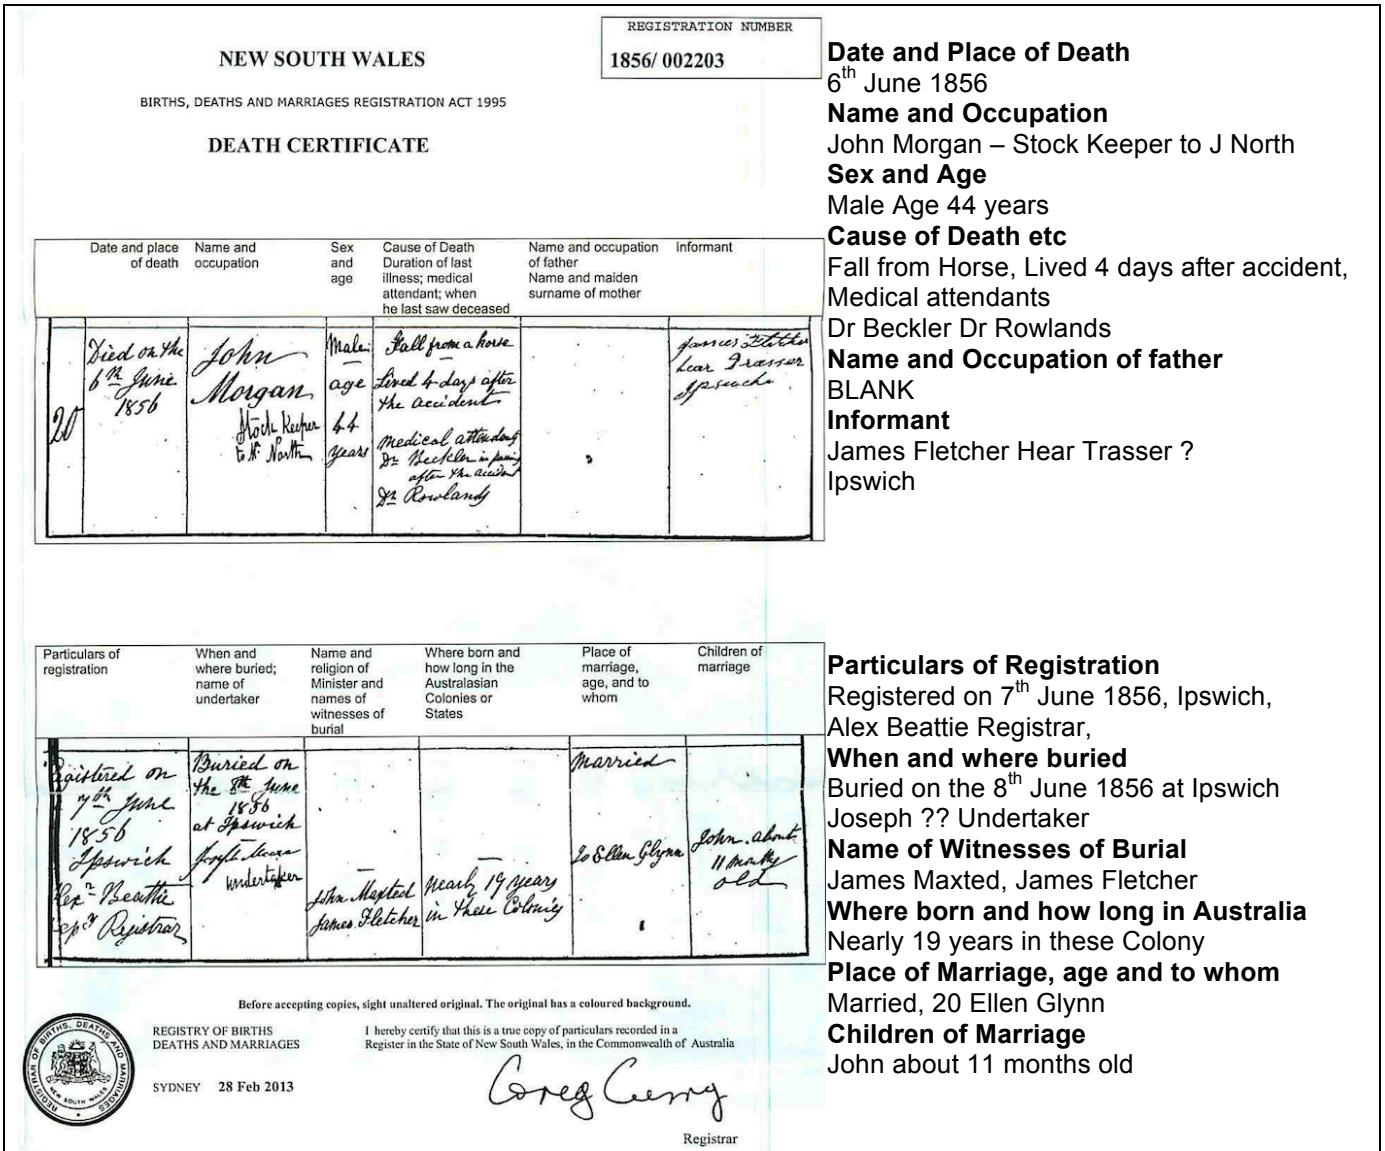 REGISTRATION NUMBER
1856/ 002203
NEW SOUTH WALES
BIRTHS, DEATHS AND MARRIAGES REGISTRATION ACT 1995
DEATH CERTIFICATE
Date and place
of death
Name and
occupation
Sex
and
age
Cause of Death
Duration of last
illness; medical
attendant; when
he last saw deceased
Name and occupation
of father
Name and maiden
surname of mother
Informant
20
Died on the
6th June
1856
John
Morgan
Stock Keeper
to North
Male
age
44
years
Fall from a horse
Lived 4 days after
the accident
medical attending
Dr Beckler in
after the accident
Dr Rowlands
James Fletcher
Ipswich
Particulars of
registration
When and
where buried;
name of
undertaker
Name and
religion of
Minister and
names of
witnesses of
burial
Where born and
how long in the
Australasian
Colonies or
States
Place of
marriage,
age, and to
whom
Children of
marriage
Registered on
7th June
1856
Ipswich
Beattie
Registrar
Buried on
the 8th June
1856
at Ipswich
Joseph
undertaker
John Maxted
James Fletcher
nearly 19 years
in these Colonies
Married
to Ellen Glynn
John about
11 months
old
Before accepting copies, sight unaltered original. The original has a coloured background.
REGISTRAR OF BIRTHS, DEATHS AND MARRIAGES
NEW SOUTH WALES
REGISTRY OF BIRTHS
DEATHS AND MARRIAGES
SYDNEY 28 Feb 2013
I hereby certify that this is a true copy of particulars recorded in a
Register in the State of New South Wales, in the Commonwealth of Australia
Greg Curry
Registrar
Date and Place of Death
6th June 1856
Name and Occupation
John Morgan – Stock Keeper to J North
Sex and Age
Male Age 44 years
Cause of Death etc
Fall from Horse, Lived 4 days after accident,
Medical attendants
Dr Beckler Dr Rowlands
Name and Occupation of father
BLANK
Informant
James Fletcher Hear Trasser ?
Ipswich
Particulars of Registration
Registered on 7th June 1856, Ipswich,
Alex Beattie Registrar,
When and where buried
Buried on the 8th June 1856 at Ipswich
Joseph ?? Undertaker
Name of Witnesses of Burial
James Maxted, James Fletcher
Where born and how long in Australia
Nearly 19 years in these Colony
Place of Marriage, age and to whom
Married, 20 Ellen Glynn
Children of Marriage
John about 11 months old